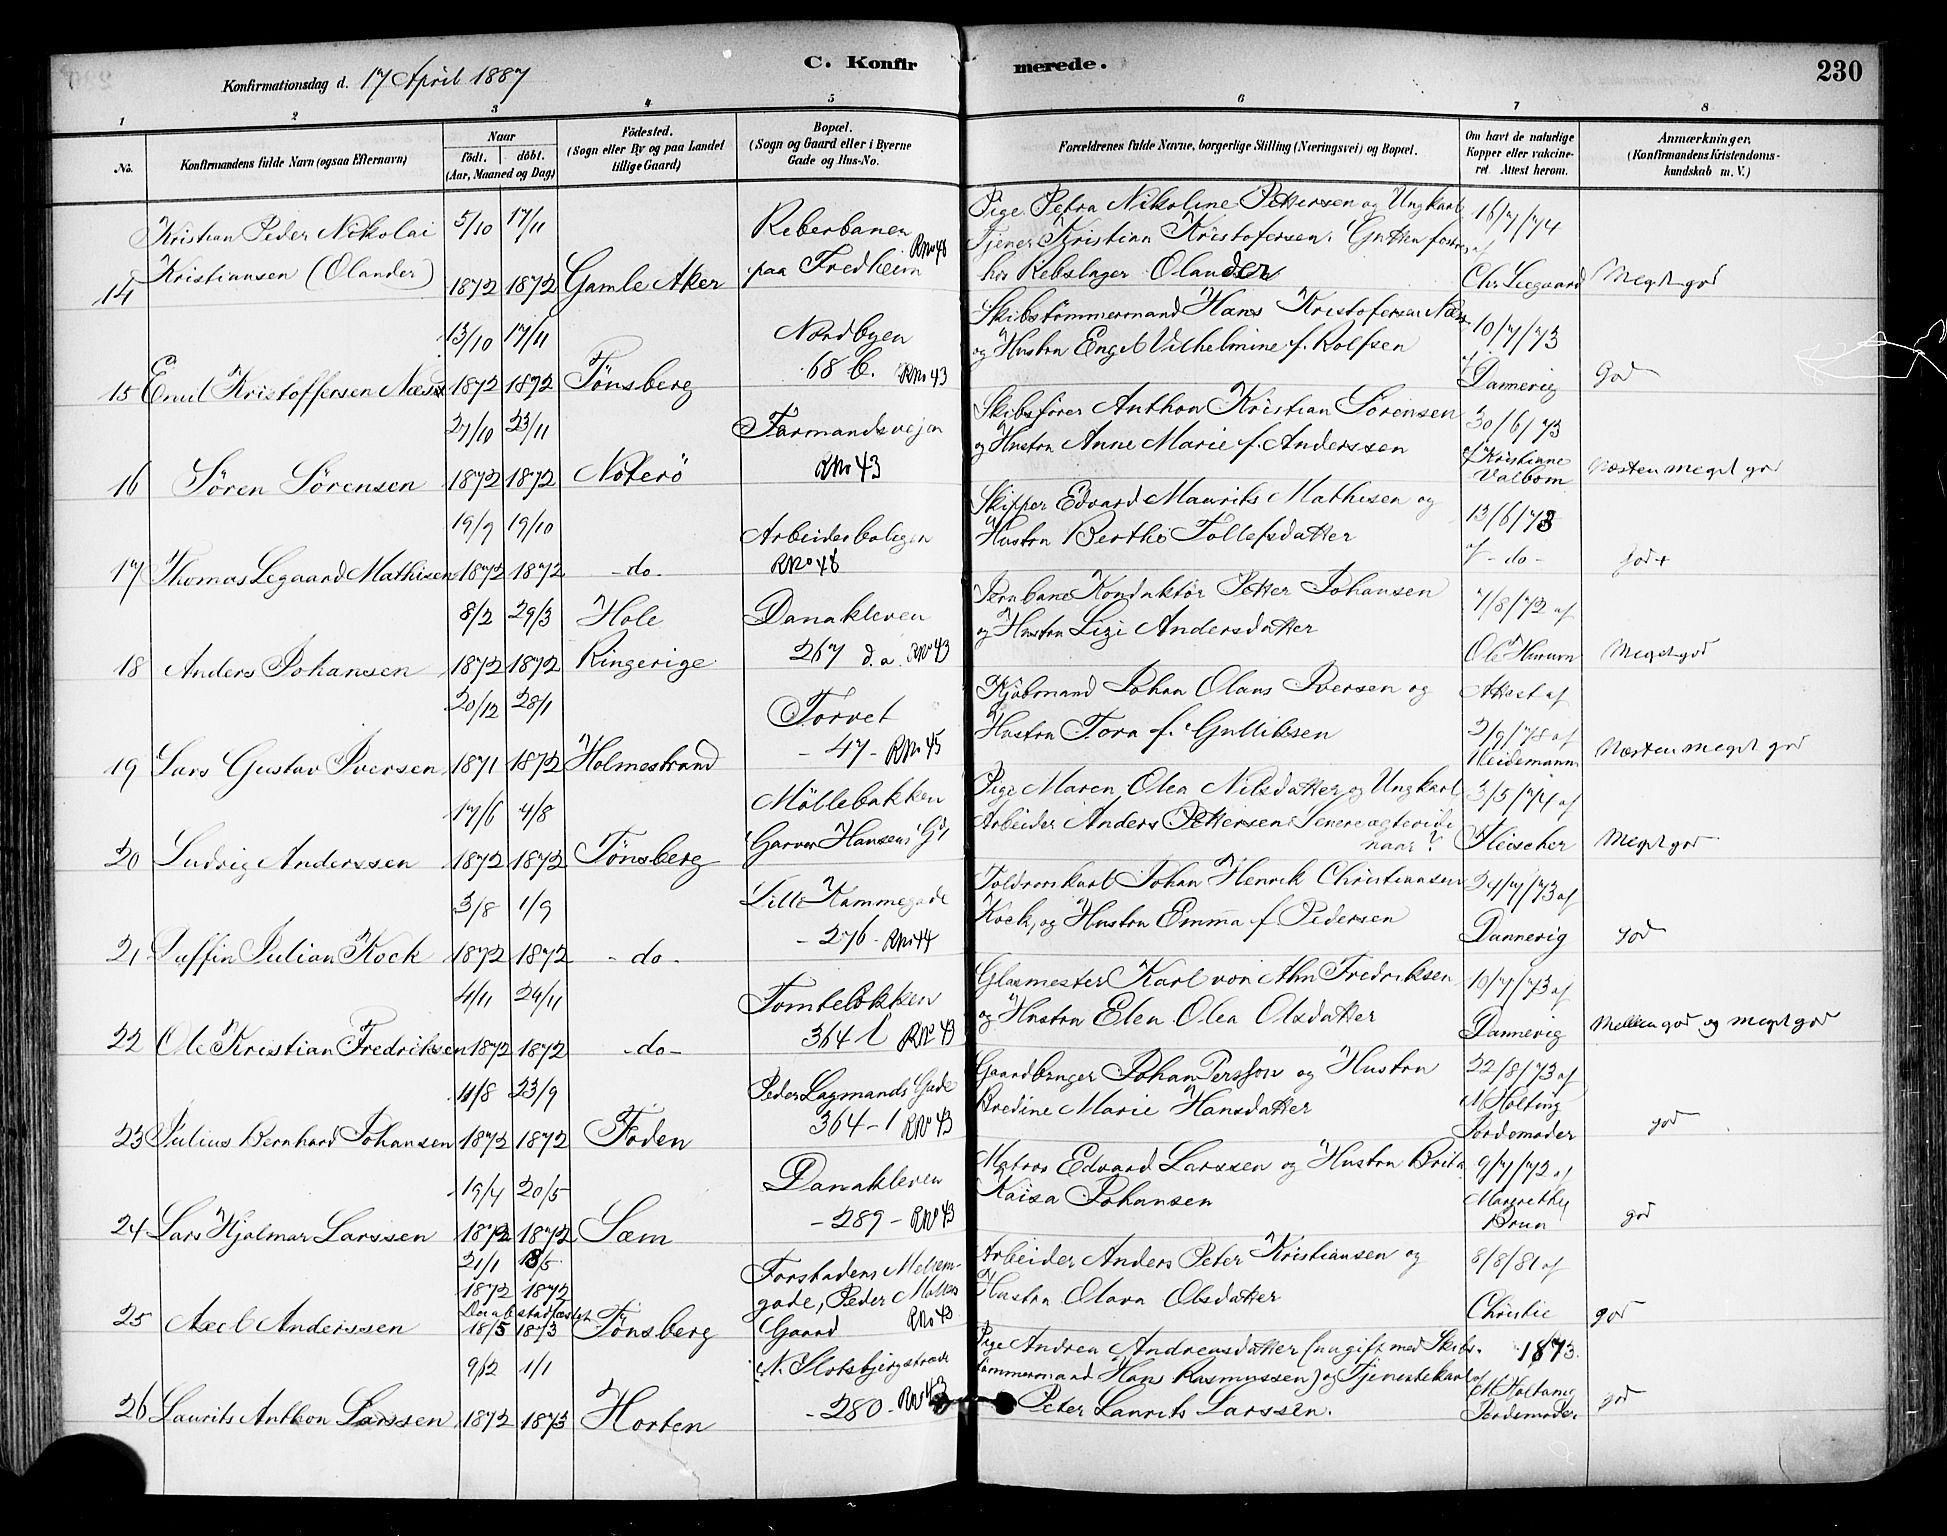 C. Konfirmerede.
230
Konfirmationsdag d. 17 April 1887
1 2 3 4 5 6 7 8
No.
Konfirmandens fulde Navn (ogsaa Efternavn)
Naar
födt. döbt.
(Aar, Maaned og Dag)
Födested.
(Sogn eller By og paa Landet
tillige Gaard)
Bopæl.
(Sogn og Gaard eller i Byerne
Gade og Hus-No.
Forældrenes fulde Navne, borgerlige Stilling (Næringsvei) og Bopæl.
Om havt de naturlige
Kopper eller vakcine-
ret Attest herom.
Anmærkninger.
(Konfirmandens Kristendoms-
kundskab m. V.)
Kristian Peder Nikolai 5/10 17/11 Reberbanen Pige Petra Nikoline Pettersen og Ungkarl 16/7/74
Tjener Kristian Kristofersen. Gutten fostres af
14 Kristiansen (Olander) 1872 1872 Gamle Aker paa Fredheim RNo 48 hos Rebslager Olander Chr Leegaard Meget god
13/10 17/11 Nordbyen Skibstømmermand Hans Kristofersen Næss 10/7/73
og Hustru Engel Vilhelmine f. Rolfsen af
15 Emil Kristoffersen Næss 1872 1872 Tönsberg 68 b. RNo 43 Dannevig God
27/10 23/11 Farmandsvejen Skibsfører Anthon Kristian Sörensen 30/6/73
og Hustru Anne Marie f. Anderssen af Kristiane
16 Sören Sörensen 1872 1872 Nøterö RNo 43 Valbom Næsten meget god
19/9 19/10 Arbeiderboligen Skipper Edvard Maurits Mathisen og 13/6/73
Hustru Berthe Tollefsdatter
17 Thomas Legaard Mathisen 1872 1872 - do - RNo 48 af - do - god +
8/2 29/3 Hole Danakleven Jernbane Konduktör Petter Johansen 7/8/72 af
og Hustru Lizi Andersdatter
18 Anders Johansen 1872 1872 Ringerige 267 d.a. RNo 43 Ole Meget god
20/12 28/1 Torvet Kjöbmand Johan Olaus Iversen og Attest af
Hustru Tora f. Gullibsen 2/9/78 af
19 Lars Gustav Iversen 1871 1872 Holmestrand - 47 - RNo 45 Heidemann Næsten meget god
17/6 4/8 Möllebakken Pige Maren Olea Nilsdatter og Ungkarl 3/5/74 af
Arbeider Anders Pettersen. Senere ægteviede
naar?
20 Ludvig Anderssen 1872 1872 Tönsberg Garver Hansens Gd Fleischer Meget god
3/8 1/9 Lille Kammegade Toldrorskarl Johan Henrik Christiansen 24/7/73 af
Kock, og Hustru Emma f. Pedersen
21 Daffin Julian Kock 1872 1872 - do - - 276 - RNo 44 Dannevig god
4/11 24/11 Tomteløkken Glasmester Karl von Ahn Fredriksen 10/7/73 af
og Hustru Elen Olea Olsdatter
22 Ole Kristian Fredriksen 1872 1872 - do - 364 l RNo 43 Dannevig Mellem god og meget god
11/8 23/9 Peder Lagmands Gade Gaardbruger Johan Persson og Hustru 22/8/73 af
Bredine Marie Hansdatter M Holting
23 Julius Bernhard Johansen 1872 1872 Foden 364 - 1 RNo 43 Jordemoder god
19/4 20/5 Danakleven Matros Edvard Larssen og Hustru Brita 9/7/72 af
Kaisa Johansen Margrethe
24 Lars Hjalmar Larssen 1872 1872 Sæm - 289 - RNo 43 Brun god
21/1 18/5 Forstadens Arbeider Anders Peter Kristiansen og 8/8/81 af
1872 1872 gade, Peder Hustru Olava Olsdatter
stadfæstet
25 Axel Anderssen 18/5 1873 Tönsberg Gaard RNo 43 Christie god
9/12 1/1 N. Slotsbjergstræde Pige Andrea Andreasdatter (nu gift med Skibs- 1873
tømmermand Hans Rasmussen) og Tjenestekarl af M Holting
26 Laurits Anthon Larssen 1872 1873 Horten - 280 - RNo 43 Peter Laurits Larssen. Jordemoder god